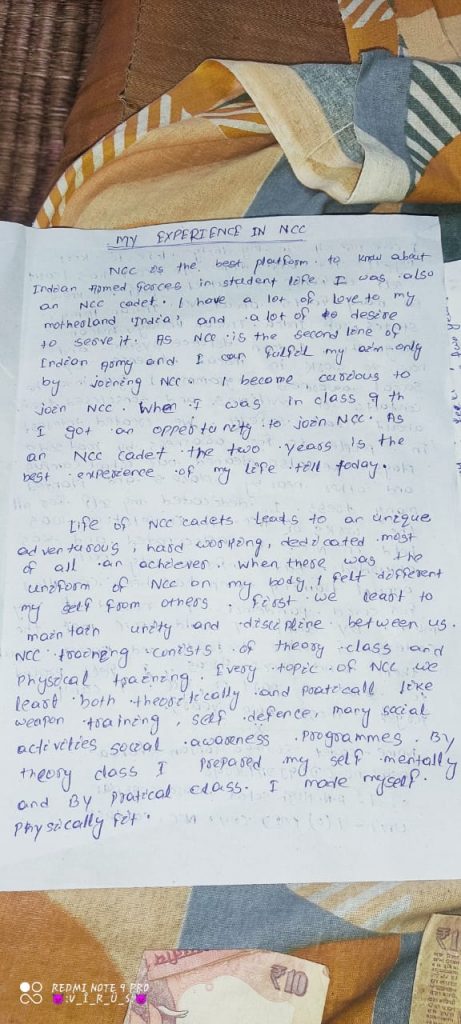 MY EXPERIENCE IN NCC
NCC is the best platform to know about
Indian Armed forces in student life. I was also
an NCC cadet. I have a lot of love to my
motherland 'India' and a lot of to desire
to serve it. As NCC is the second line of
Indian Army and I can fulfil my aim only
by joining NCC. I become curious to
join NCC. When I was in class 9 th
I got an opportunity to join NCC. As
an NCC cadet the two years is the
best experience of my life till today.
Life of NCC cadets leads to an unique
adventurous, hard working, dedicated most
of all an achiever. When there was the
uniform of NCC on my body, I felt different
my self from others. First we leart to
maintain unity and discipline between us.
NCC training conists of theory class and
Physical training. Every topic of NCC we
leart both theoritically and praticall like
weapon training, self defence, many social
activities social awareness programmes. By
theory class I prepared my self mentally
and By Pratical class. I made myself.
Physically fit.
₹10
REDMI NOTE 9 PRO
:V_I_R_U_S